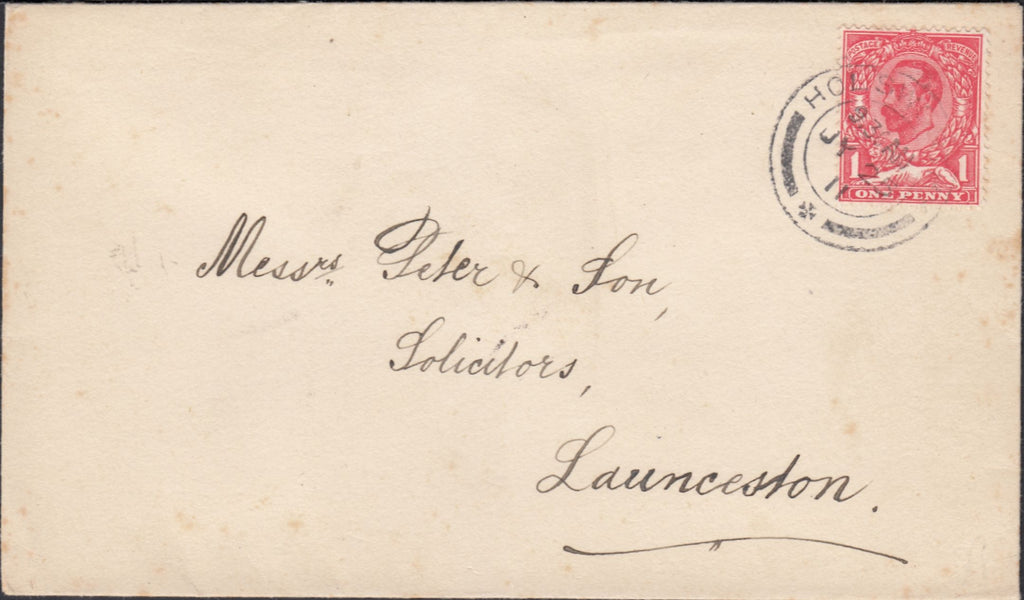 POSTAGE REVENUE
1 1
ONE PENNY
JY 22
11
Messrs Peter & Son,
Solicitors,
Launceston.